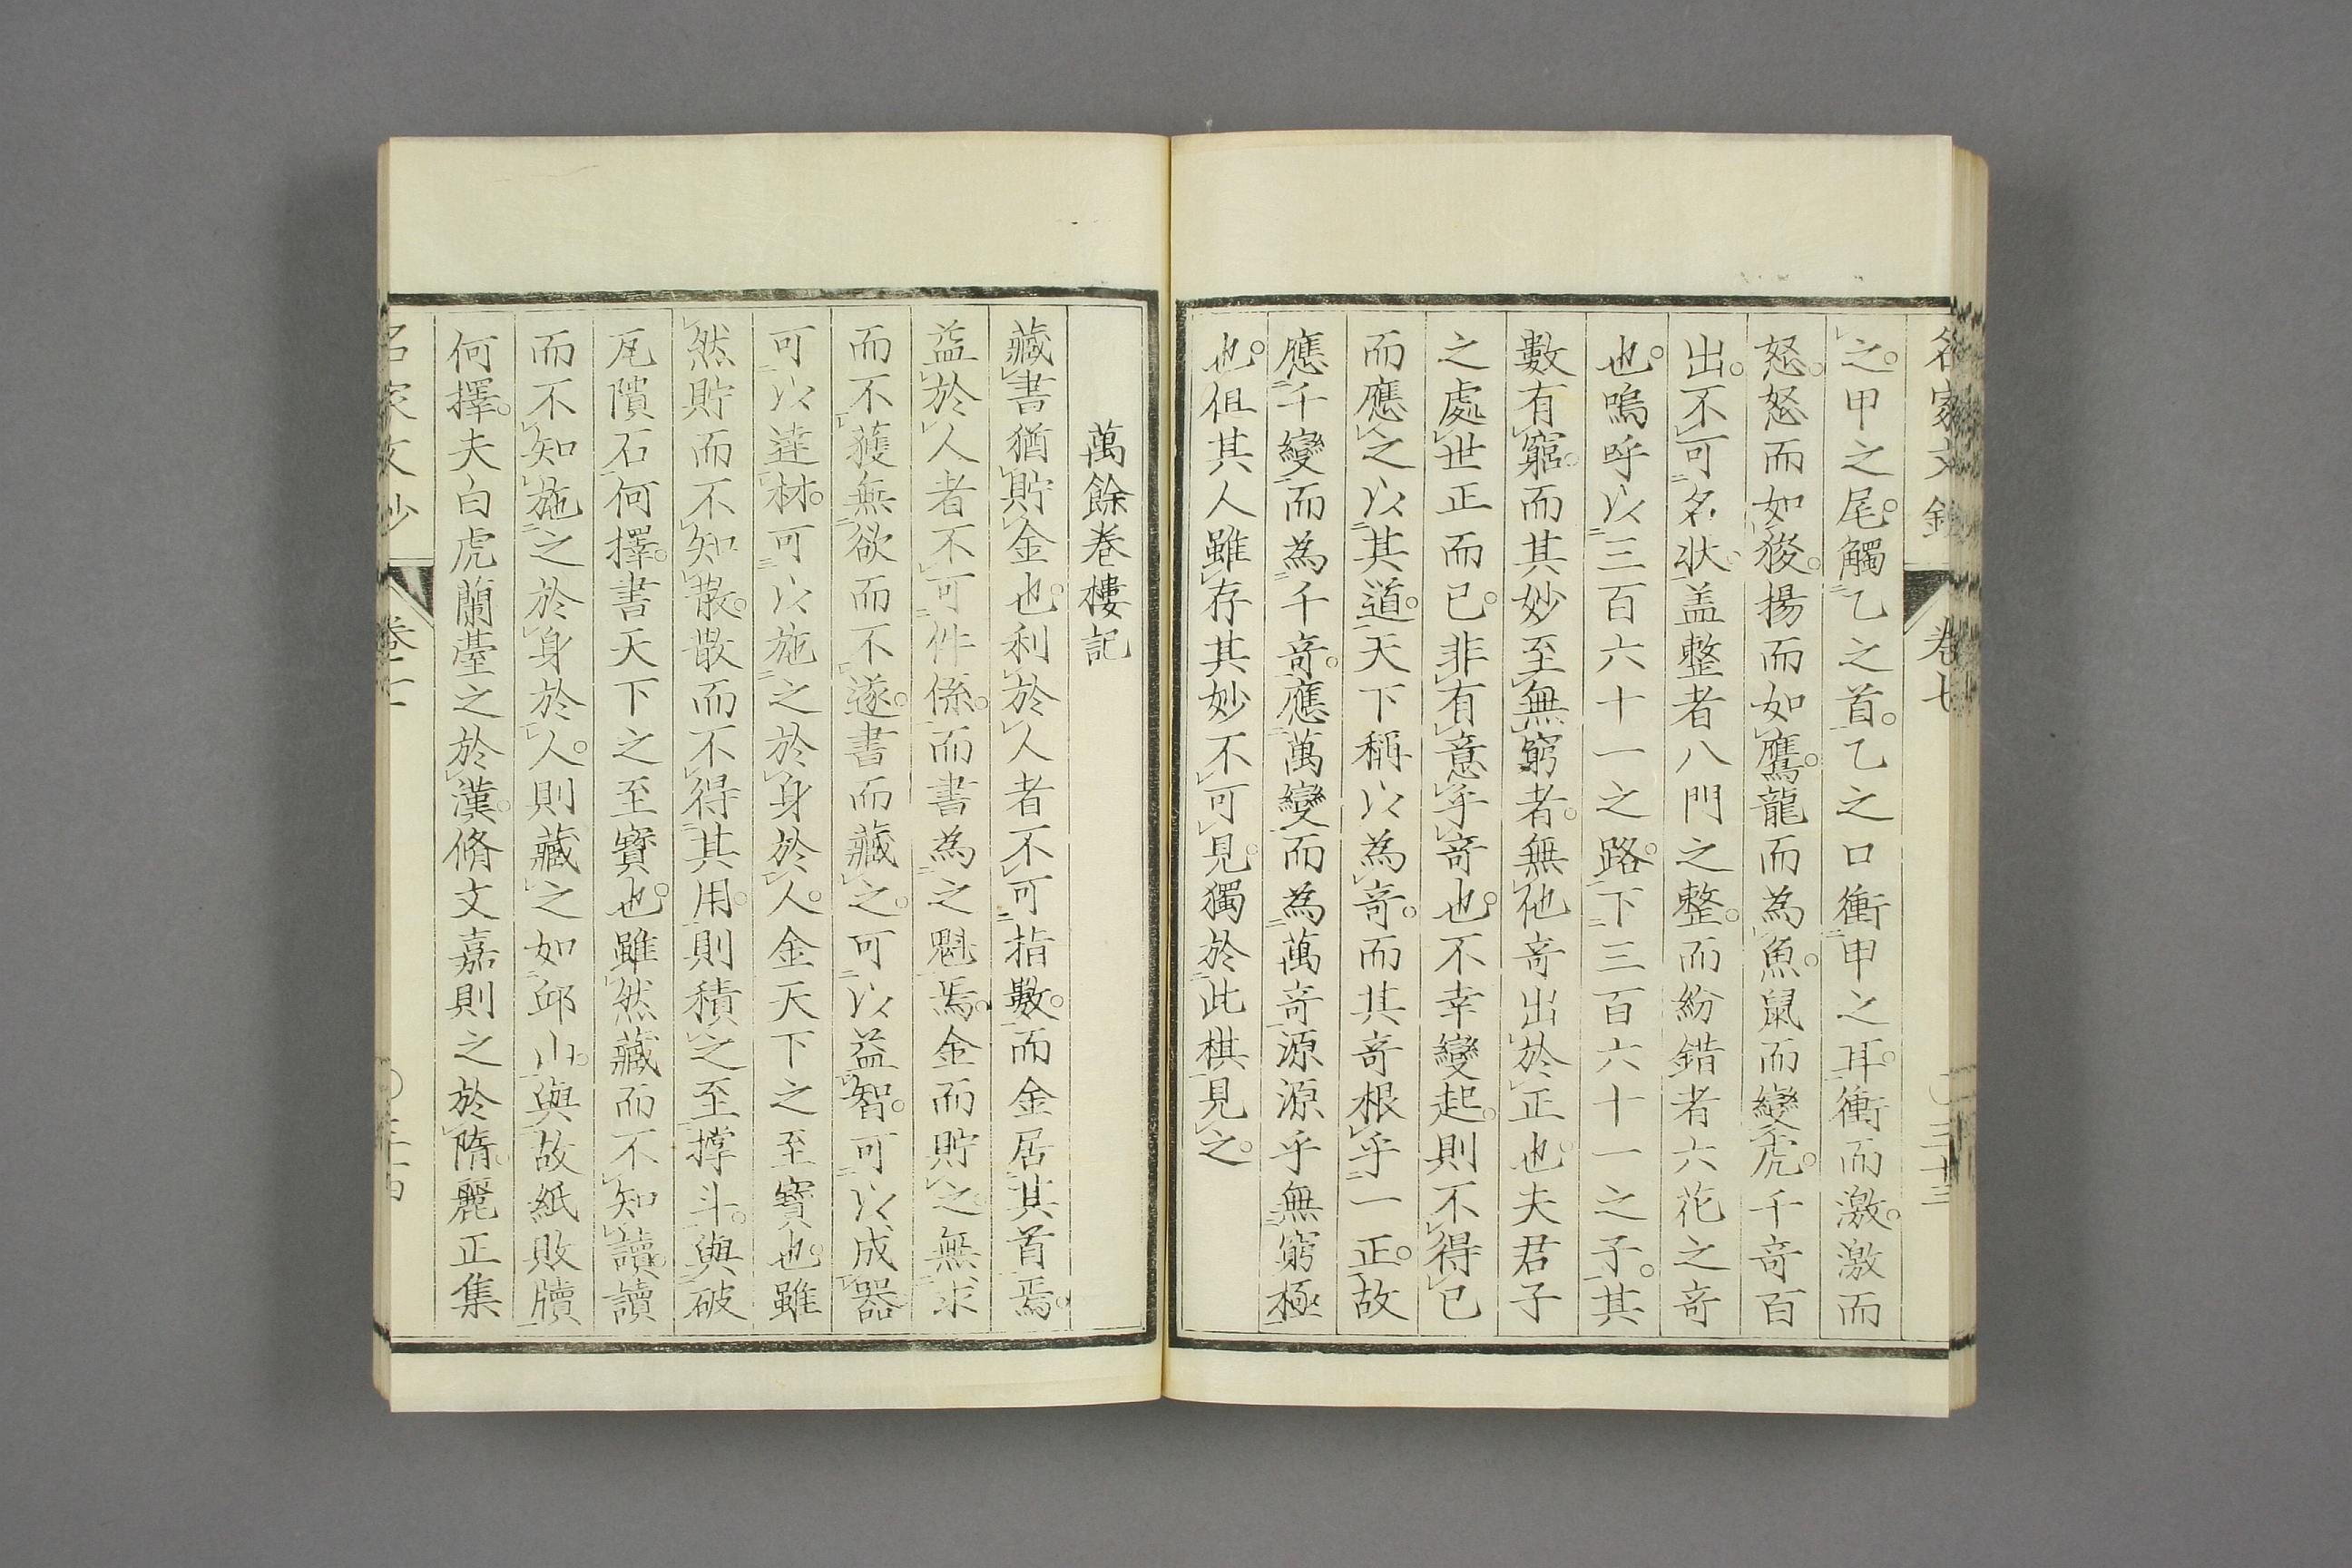 之。甲之尾。觸乙之首。乙之口衝甲之耳。衝而激。激而
怒。怒而如猨。揚而如鷹。龍而為魚。鼠而變虎。千竒百
出。不可名狀。盖整者八門之整。而紛錯者六花之竒
也。嗚呼以三百六十一之路。下三百六十一之子。其
數有窮。而其妙至無窮者。無他竒出於正也。夫君子
之處世正而已。非有意乎竒也。不幸變起。則不得已
而應之以其道。天下稱以為竒。而其竒根乎一正。故
應千變而為千竒。應萬變而為萬竒源源乎無窮極
也。但其人雖存其妙不可見。獨於此棋見之。
萬餘卷樓記
藏書猶貯金也。利於人者不可指數。而金居其首焉。
益於人者不可件係。而書為之魁焉。金而貯之。無求
而不獲無欲而不遂。書而藏之。可以益智。可以成器
可以達材。可以施之於身於人。金天下之至寶也。雖
然貯而不知散。散而不得其用。則積之至撑斗。與破
瓦隕石何擇。書天下之至寶也。雖然藏而不知讀。讀
而不知施之於身於人。則藏之如邱山。與故紙敗牘
何擇。夫白虎蘭臺之於漢。脩文嘉則之於隋。麗正集
卷七
三十三